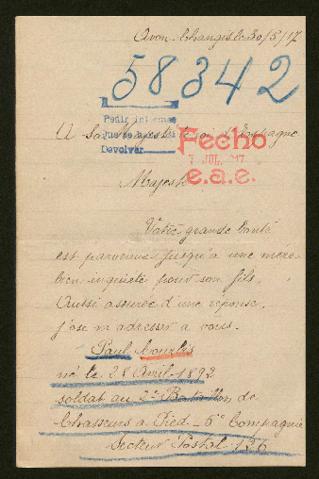 Avon. le 30/5/17
58342
Pedir informes
Devolver
A Sa Majesté le roi d'Espagne
Fecho
7 JUL. 917
e.a.e.
Majesté
Votre grande bonté
est parvenue jusqu'à une mère
bien inquiète pour son fils.
Aussi assurée d'une réponse.
j'ose m'adresser à vous.
Paul
né le 28 Avril 1892
soldat au 2e Bataillon de
Chasseurs à Pied 6e Compagnie
Secteur Postal 136